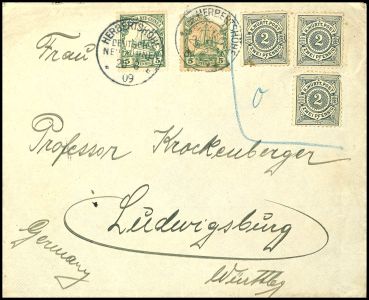 HERBERTSHÖHE
DEUTSCH-
NEU-GUINEA
09
5 5
HERBERTSHÖHE
5 5
2
2
2
Frau
o
Professor Krockenberger
Ludwigsburg
Württbg
Germany